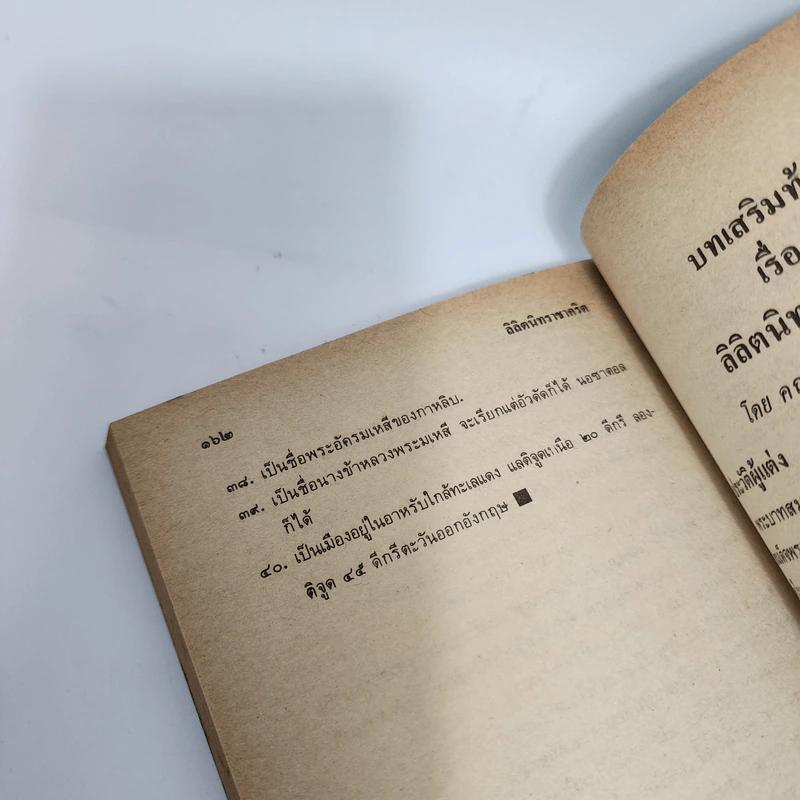 ๑๖๒
ลิลิตนิทราชาคริต
๓๘. เป็นชื่อพระอัครมเหสีของกาหลิบ.
๓๙. เป็นชื่อนางข้าหลวงพระมเหสี จะเรียกแต่อัวดัดก็ได้ นอซาตอล
ก็ได้
๔๐. เป็นเมืองอยู่ในอาหรับใกล้ทะเลแดง แลติจูดเหนือ ๒๐ ดีกรี ลอง-
ติจูด ๔๕ ดีกรีตะวันออกอังกฤษ
บทเสริมท้
เรื่อ
ลิลิตนิท
โดย
ประวัติผู้แต่ง
พระบาทสม